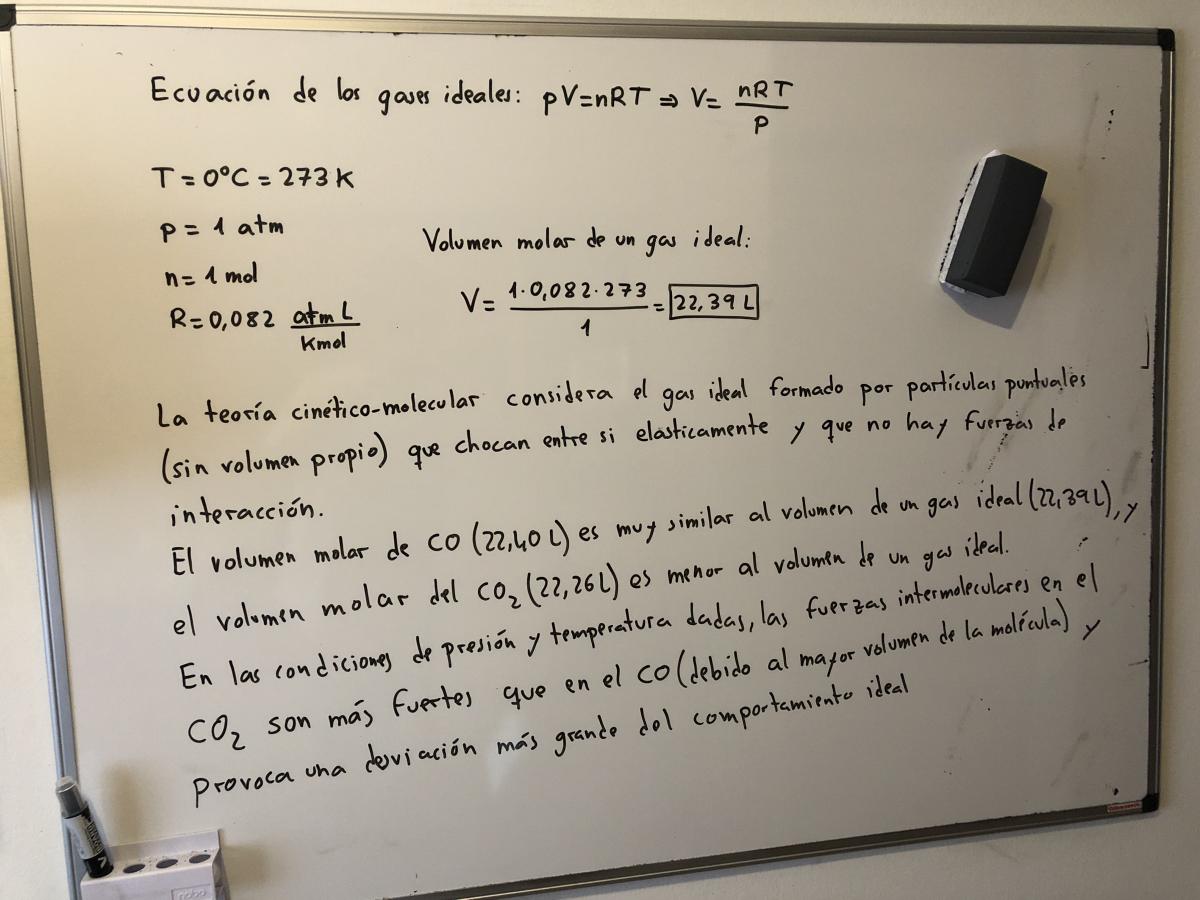 Ecuación de los gases ideales: pV=nRT ⇒ V= nRT/P
T = 0ºC = 273 K
p = 1 atm
n = 1 mol
R = 0,082 atm L/Kmol
Volumen molar de un gas ideal:
V = 1·0,082·273/1 = 22,39 L
La teoría cinético-molecular considera el gas ideal formado por partículas puntuales
(sin volumen propio) que chocan entre si elasticamente y que no hay fuerzas de
interacción.
El volumen molar de CO (22,40 L) es muy similar al volumen de un gas ideal (22,39 L), y
el volumen molar del CO₂ (22,26 L) es menor al volumen de un gas ideal.
En las condiciones de presión y temperatura dadas, las fuerzas intermoleculares en el
CO₂ son más fuertes que en el CO (debido al mayor volumen de la molécula) y
provoca una desviación más grande del comportamiento ideal
nobo